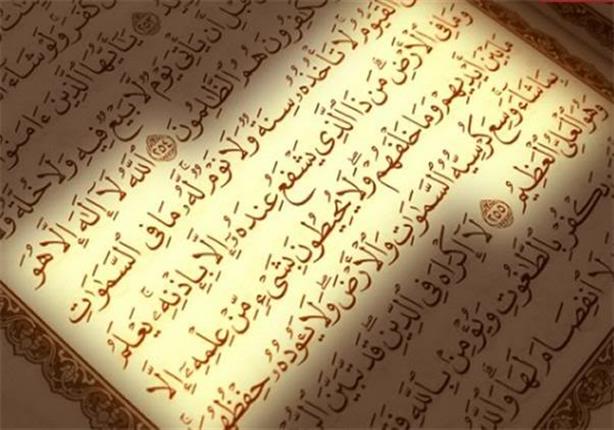 كَفَرَ وَلَوْ شَآءَ
٢٥٣ يَٰٓأَيُّهَا ٱلَّذِينَ ءَامَنُوٓا۟
قَبْلِ أَن يَأْتِىَ يَوْمٌ لَّا بَيْعٌ فِيهِ وَلَا خُلَّةٌ وَ
ٱلْكَٰفِرُونَ هُمُ ٱلظَّٰلِمُونَ ٢٥٤ ٱللَّهُ لَآ إِلَٰهَ إِلَّا هُوَ
ٱلْقَيُّومُ لَا تَأْخُذُهُۥ سِنَةٌ وَلَا نَوْمٌ لَّهُۥ مَا فِى ٱلسَّمَٰوَٰتِ
وَمَا فِى ٱلْأَرْضِ مَن ذَا ٱلَّذِى يَشْفَعُ عِندَهُۥٓ إِلَّا بِإِذْنِهِۦ يَعْلَمُ
مَا بَيْنَ أَيْدِيهِمْ وَمَا خَلْفَهُمْ وَلَا يُحِيطُونَ بِشَىْءٍ مِّنْ عِلْمِهِۦٓ إِلَّا
بِمَا شَآءَ وَسِعَ كُرْسِيُّهُ ٱلسَّمَٰوَٰتِ وَٱلْأَرْضَ وَلَا يَـُٔودُهُۥ حِفْظُهُمَا
وَهُوَ ٱلْعَلِىُّ ٱلْعَظِيمُ ٢٥٥ لَآ إِكْرَاهَ فِى ٱلدِّينِ قَد تَّبَيَّنَ
يَكْفُرْ بِٱلطَّٰغُوتِ وَيُؤْمِنۢ بِٱللَّهِ فَقَدِ
لَا ٱنفِصَامَ لَهَا وَٱللَّهُ